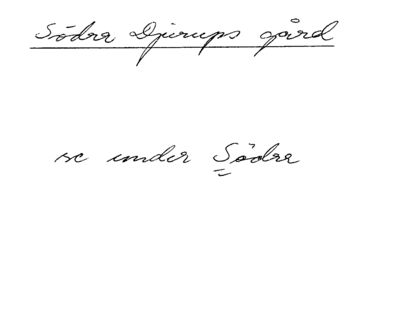 Södra Djurups gård
se under Södra